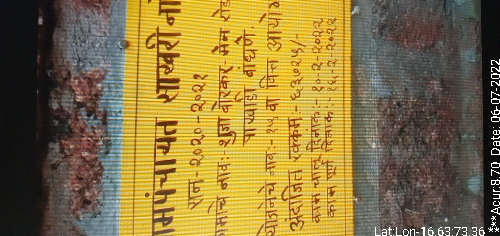 ग्रामपंचायत साखरी ना
सन:-२०२०-२०२१
कामाचे नाव:- शुजा बोरकर मेन रोड
पाखाडी बांधणे.
योजनेचे नाव:- १५ वा वित्त आयोग
अंदाजित रक्कम:- ६३०२५/-
काम चालू दिनांक:- १०-२-२०२२
काम पूर्ण दिनांक:- १६-२-२०२२
Lat Lon-16.63,73.36
***Acur:9.70, Date: 06-07-2022